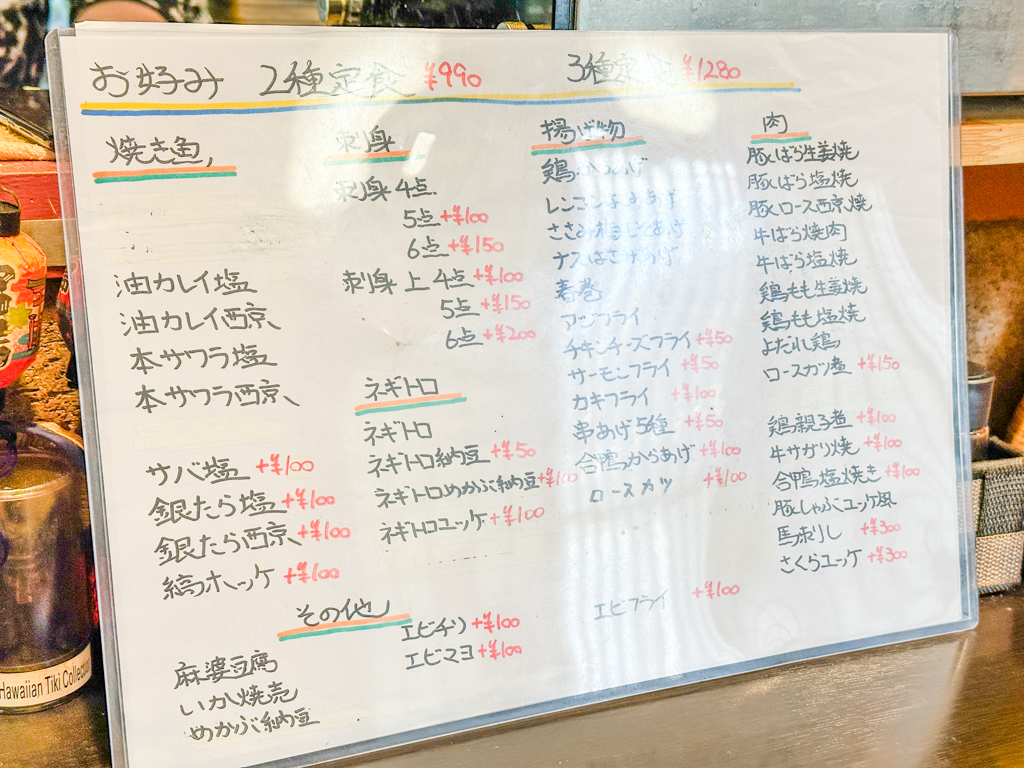 お好み 2種定食 ¥990 3種定食 ¥1280
焼き魚
油カレイ塩
油カレイ西京
本サワラ塩
本サワラ西京
サバ塩 +¥100
銀たら塩 +¥100
銀たら西京 +¥100
縞ホッケ +¥100
刺身
刺身 4点
5点 +¥100
6点 +¥150
刺身 上 4点 +¥100
5点 +¥150
6点 +¥200
ネギトロ
ネギトロ
ネギトロ納豆 +¥50
ネギトロめかぶ納豆 +¥100
ネギトロユッケ +¥100
揚げ物
鶏からあげ
レンコンはさみあげ
ささみ梅しそあげ
ナスはさみあげ
春巻
アジフライ
チキンチーズフライ +¥50
サーモンフライ +¥50
カキフライ +¥100
串あげ5種 +¥50
合鴨からあげ +¥100
ロースカツ +¥100
エビフライ +¥100
肉
豚ばら生姜焼
豚ばら塩焼
豚ロース西京焼
牛ばら焼肉
牛ばら塩焼
鶏もも生姜焼
鶏もも塩焼
よだれ鶏
ロースカツ煮 +¥150
鶏親子煮 +¥100
牛サガリ焼 +¥100
合鴨塩焼き +¥100
豚しゃぶユッケ風
馬刺し +¥300
さくらユッケ +¥300
その他
麻婆豆腐
いか焼売
めかぶ納豆
エビチリ +¥100
エビマヨ +¥100
Hawaiian Tiki Collec